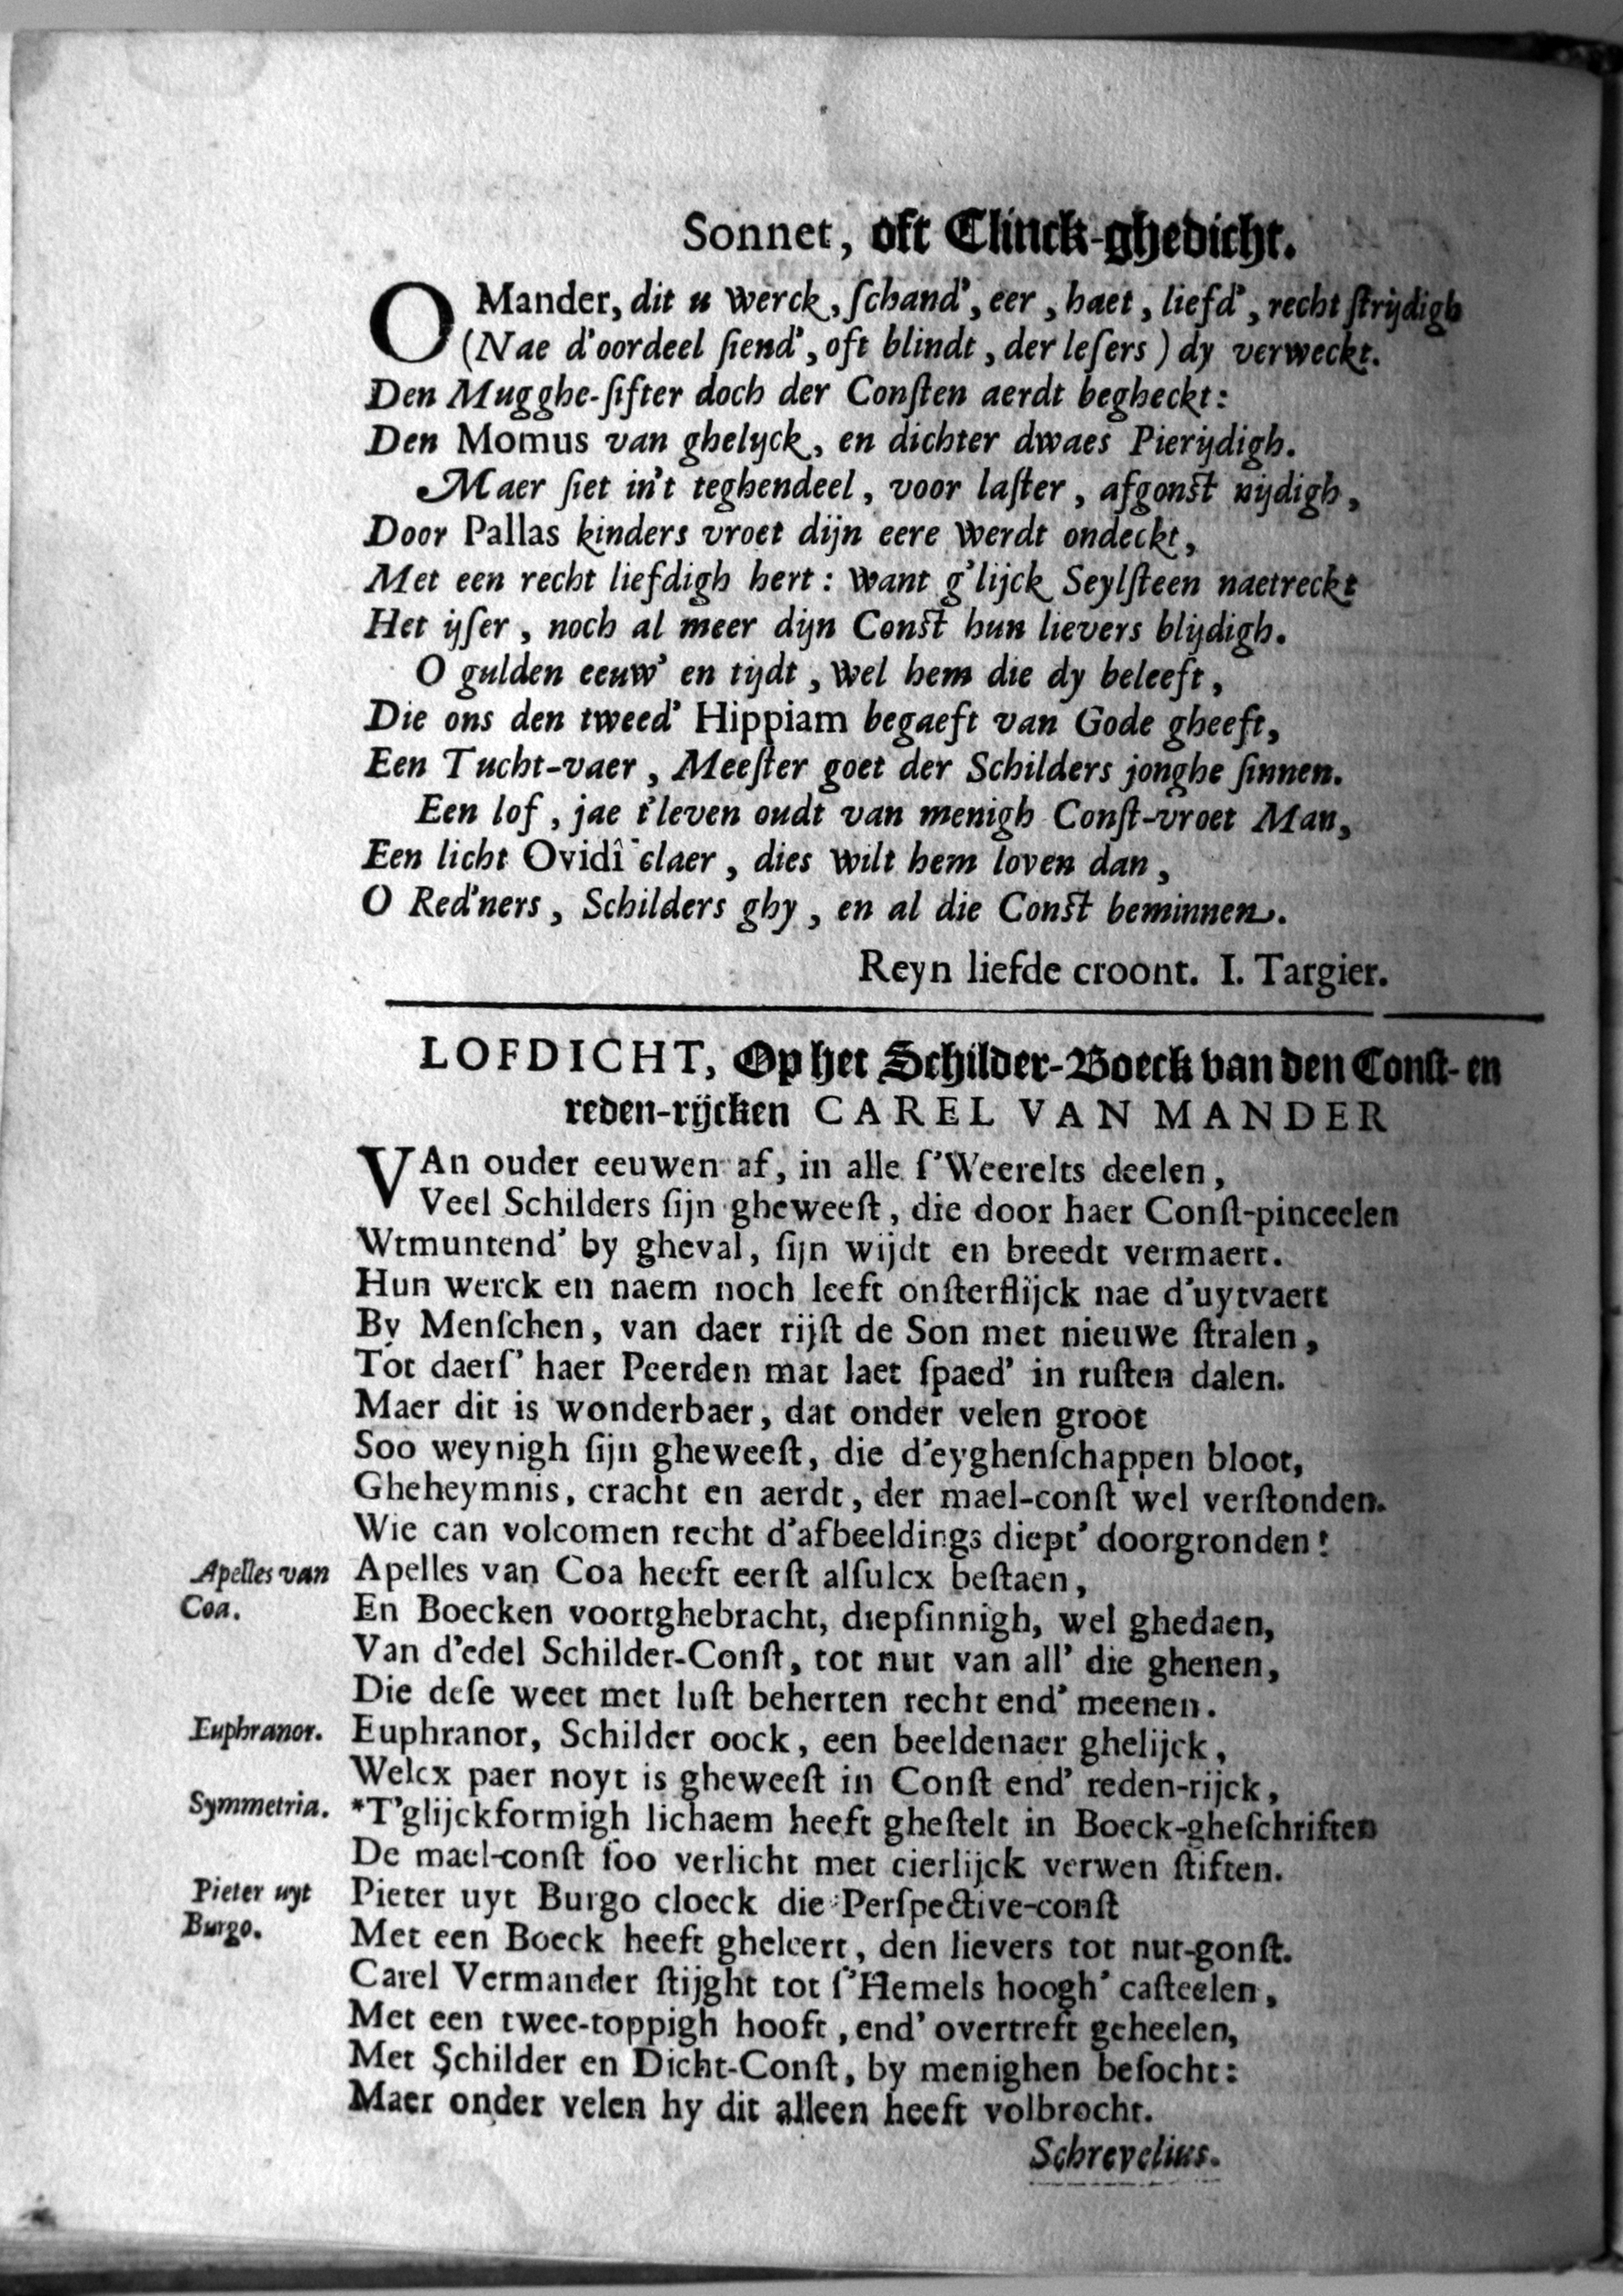 Sonnet, oft Clinck-ghedicht.
O Mander, dit u werck, ſchand', eer, haet, liefd', recht ſtrijdigh
(Nae d'oordeel ſiend', oft blindt, der leſers) dy verweckt.
Den Mugghe-ſifter doch der Conſten aerdt begheckt:
Den Momus van ghelyck, en dichter dwaes Pierijdigh.
Maer ſiet in't teghendeel, voor laſter, afgonſt nijdigh,
Door Pallas kinders vroet dijn eere werdt ondeckt,
Met een recht liefdigh hert: want g'lijck Seylſteen naetreckt
Het ijſer, noch al meer dijn Conſt hun lievers blijdigh.
O gulden eeuw' en tijdt, wel hem die dy beleeft,
Die ons den tweed' Hippiam begaeft van Gode gheeft,
Een Tucht-vaer, Meeſter goet der Schilders jonghe ſinnen.
Een lof, jae t'leven oudt van menigh Conſt-vroet Man,
Een licht Ovidî claer, dies wilt hem loven dan,
O Red'ners, Schilders ghy, en al die Conſt beminnen.
Reyn liefde croont. I. Targier.
LOFDICHT, Op het Schilder-Boeck van den Conſt- en
reden-rijcken CAREL VAN MANDER
VAn ouder eeuwen af, in alle ſ'Weerelts deelen,
Veel Schilders ſijn gheweeſt, die door haer Conſt-pinceelen
Wtmuntend' by gheval, ſijn wijdt en breedt vermaert.
Hun werck en naem noch leeft onſterflijck nae d'uytvaert
By Menſchen, van daer rijſt de Son met nieuwe ſtralen,
Tot daerſ' haer Peerden mat laet ſpaed' in ruſten dalen.
Maer dit is wonderbaer, dat onder velen groot
Soo weynigh ſijn gheweeſt, die d'eyghenſchappen bloot,
Gheheymnis, cracht en aerdt, der mael-conſt wel verſtonden.
Wie can volcomen recht d'afbeeldings diept' doorgronden!
Apelles van Coa.
Apelles van Coa heeft eerſt alſulcx beſtaen,
En Boecken voortghebracht, diepſinnigh, wel ghedaen,
Van d'edel Schilder-Conſt, tot nut van all' die ghenen,
Die deſe weet met luſt beherten recht end' meenen.
Euphranor.
Euphranor, Schilder oock, een beeldenaer ghelijck,
Welcx paer noyt is gheweeſt in Conſt end' reden-rijck,
Symmetria.
*T'glijckformigh lichaem heeft gheſtelt in Boeck-gheſchriften
De mael-conſt ſoo verlicht met cierlijck verwen ſtiften.
Pieter uyt Burgo.
Pieter uyt Burgo cloeck die Perſpective-conſt
Met een Boeck heeft gheleert, den lievers tot nut-gonſt.
Carel Vermander ſtijght tot ſ'Hemels hoogh' caſteelen,
Met een twee-toppigh hooft, end' overtreft geheelen,
Met Schilder en Dicht-Conſt, by menighen beſocht:
Maer onder velen hy dit alleen heeft volbrocht.
Schrevelius.